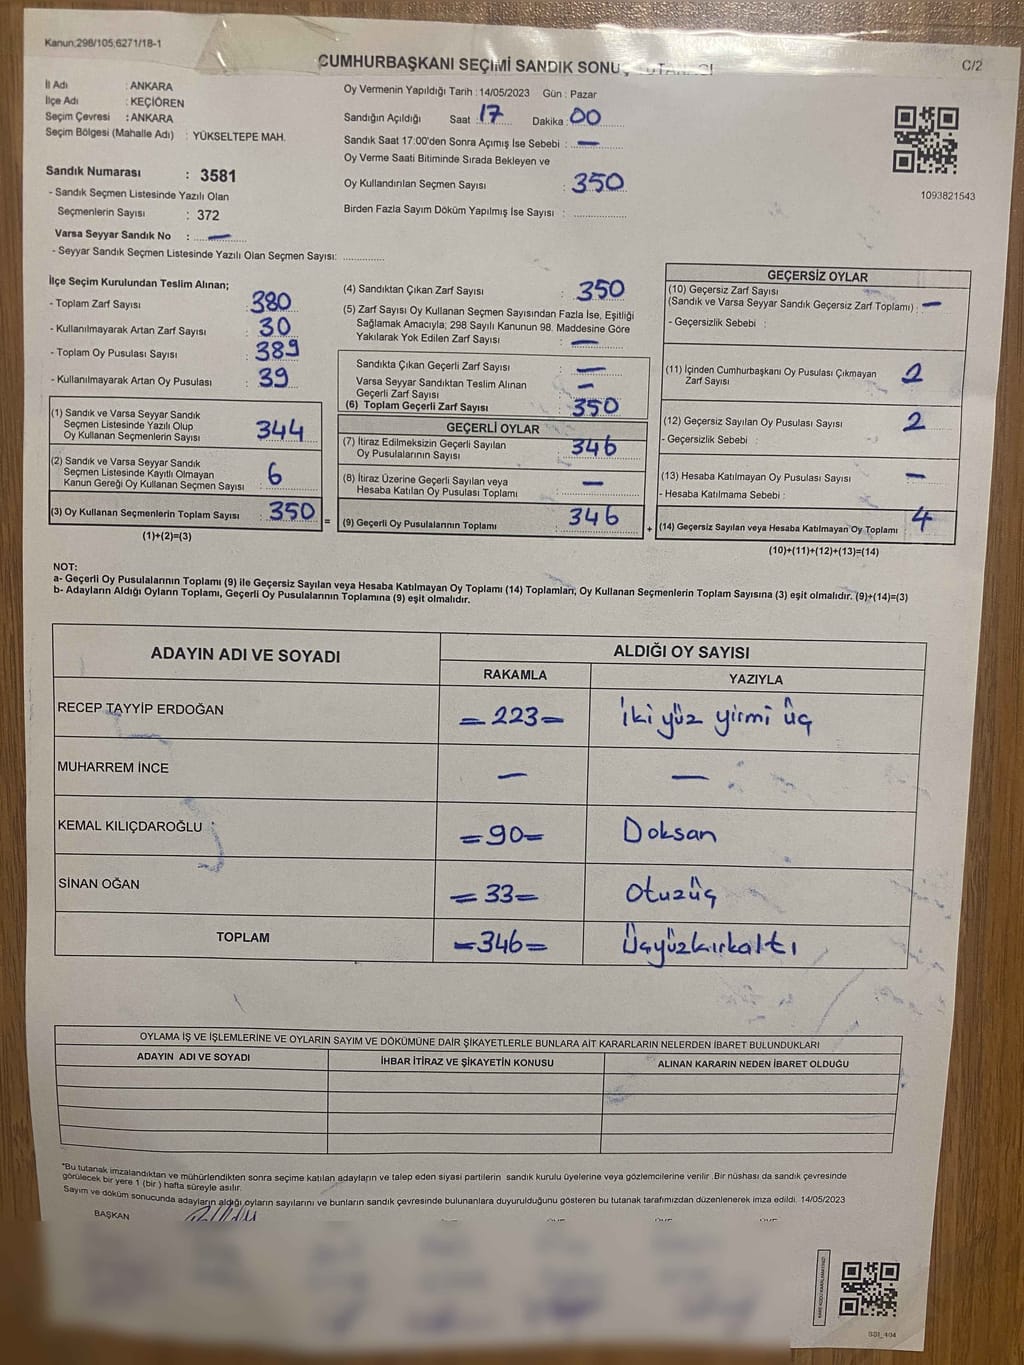 Kanun;298/105,6271/18-1
C/2
CUMHURBAŞKANI SEÇİMİ SANDIK SONU
İl Adı : ANKARA
İlçe Adı : KEÇİÖREN
Seçim Çevresi : ANKARA
Seçim Bölgesi (Mahalle Adı) : YÜKSELTEPE MAH.
Sandık Numarası : 3581
- Sandık Seçmen Listesinde Yazılı Olan
Seçmenlerin Sayısı : 372
Varsa Seyyar Sandık No : —
- Seyyar Sandık Seçmen Listesinde Yazılı Olan Seçmen Sayısı: ............
Oy Vermenin Yapıldığı Tarih : 14/05/2023 Gün : Pazar
Sandığın Açıldığı Saat : 17 Dakika : 00
Sandık Saat 17:00'den Sonra Açımış İse Sebebi : —
Oy Verme Saati Bitiminde Sırada Bekleyen ve
Oy Kullandırılan Seçmen Sayısı : 350
Birden Fazla Sayım Döküm Yapılmış İse Sayısı : ............
1093821543
İlçe Seçim Kurulundan Teslim Alınan;
- Toplam Zarf Sayısı : 380
- Kullanılmayarak Artan Zarf Sayısı : 30
- Toplam Oy Pusulası Sayısı : 389
- Kullanılmayarak Artan Oy Pusulası : 39
(1) Sandık ve Varsa Seyyar Sandık
Seçmen Listesinde Yazılı Olup
Oy Kullanan Seçmenlerin Sayısı : 344
(2) Sandık ve Varsa Seyyar Sandık
Seçmen Listesinde Kayıtlı Olmayan
Kanun Gereği Oy Kullanan Seçmen Sayısı : 6
(3) Oy Kullanan Seçmenlerin Toplam Sayısı : 350 =
(1)+(2)=(3)
(4) Sandıktan Çıkan Zarf Sayısı : 350
(5) Zarf Sayısı Oy Kullanan Seçmen Sayısından Fazla İse, Eşitliği
Sağlamak Amacıyla; 298 Sayılı Kanunun 98. Maddesine Göre
Yakılarak Yok Edilen Zarf Sayısı : —
Sandıkta Çıkan Geçerli Zarf Sayısı : —
Varsa Seyyar Sandıktan Teslim Alınan
Geçerli Zarf Sayısı : —
(6) Toplam Geçerli Zarf Sayısı : 350
GEÇERLİ OYLAR
(7) İtiraz Edilmeksizin Geçerli Sayılan
Oy Pusulalarının Sayısı : 346
(8) İtiraz Üzerine Geçerli Sayılan veya
Hesaba Katılan Oy Pusulası Toplamı : —
(9) Geçerli Oy Pusulalarının Toplamı : 346 +
GEÇERSİZ OYLAR
(10) Geçersiz Zarf Sayısı
(Sandık ve Varsa Seyyar Sandık Geçersiz Zarf Toplamı) : —
- Geçersizlik Sebebi :
(11) İçinden Cumhurbaşkanı Oy Pusulası Çıkmayan
Zarf Sayısı : 2
(12) Geçersiz Sayılan Oy Pusulası Sayısı : 2
- Geçersizlik Sebebi :
(13) Hesaba Katılmayan Oy Pusulası Sayısı : —
- Hesaba Katılmama Sebebi :
(14) Geçersiz Sayılan veya Hesaba Katılmayan Oy Toplamı : 4
(10)+(11)+(12)+(13)=(14)
NOT:
a- Geçerli Oy Pusulalarının Toplamı (9) ile Geçersiz Sayılan veya Hesaba Katılmayan Oy Toplamı (14) Toplamları, Oy Kullanan Seçmenlerin Toplam Sayısına (3) eşit olmalıdır. (9)+(14)=(3)
b- Adayların Aldığı Oyların Toplamı, Geçerli Oy Pusulalarının Toplamına (9) eşit olmalıdır.
ADAYIN ADI VE SOYADI ALDIĞI OY SAYISI
RAKAMLA YAZIYLA
RECEP TAYYİP ERDOĞAN =223= İki yüz yirmi üç
MUHARREM İNCE — —
KEMAL KILIÇDAROĞLU =90= Doksan
SİNAN OĞAN =33= Otuzüç
TOPLAM =346= Üçyüzkırkaltı
OYLAMA İŞ VE İŞLEMLERİNE VE OYLARIN SAYIM VE DÖKÜMÜNE DAİR ŞİKAYETLERLE BUNLARA AİT KARARLARIN NELERDEN İBARET BULUNDUKLARI
ADAYIN ADI VE SOYADI İHBAR İTİRAZ VE ŞİKAYETİN KONUSU ALINAN KARARIN NEDEN İBARET OLDUĞU
*Bu tutanak imzalandıktan ve mühürlendikten sonra seçime katılan adayların ve talep eden siyasi partilerin sandık kurulu üyelerine veya gözlemcilerine verilir .Bir nüshası da sandık çevresinde
görülecek bir yere 1 (bir ) hafta süreyle asılır.
Sayım ve döküm sonucunda adayların aldığı oyların sayılarını ve bunların sandık çevresinde bulunanlara duyurulduğunu gösteren bu tutanak tarafımızdan düzenlenerek imza edildi. 14/05/2023
BAŞKAN